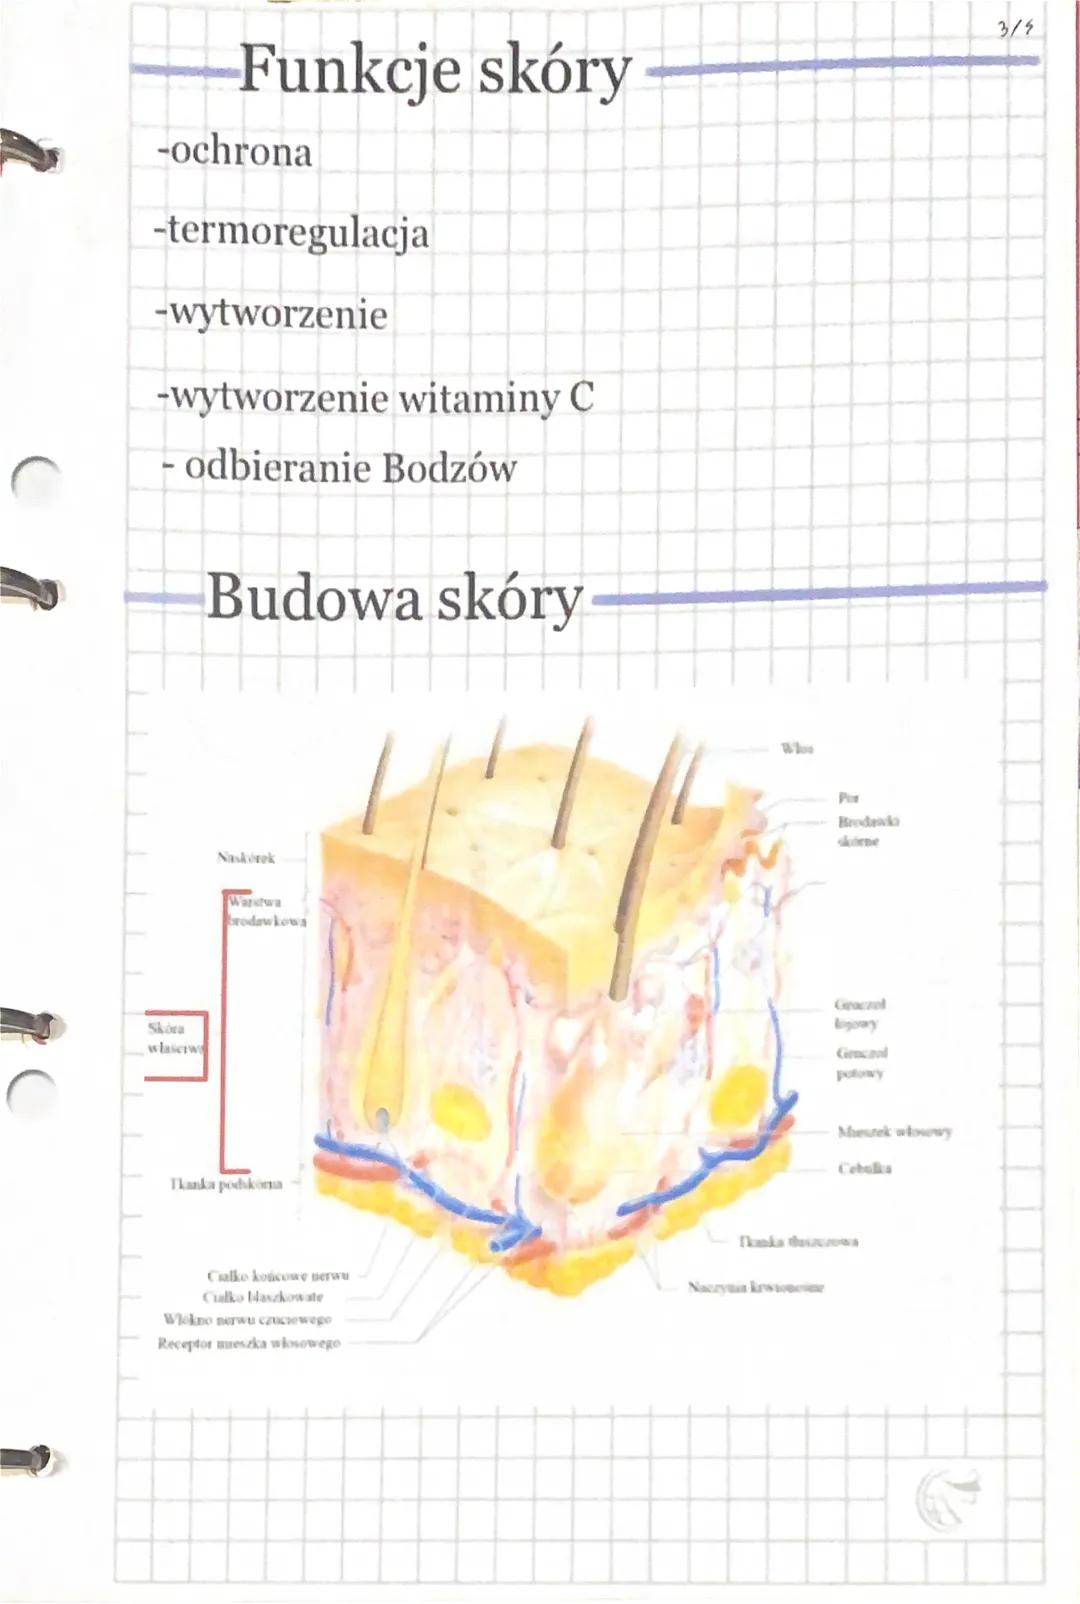 3/5
Funkcje skóry
-ochrona
-termoregulacja
-wytworzenie
-wytworzenie witaminy C
- odbieranie Bodzów
Budowa skóry
Włos
Por
Brodawki
skórne
Naskórek
Warstwa
brodawkowa
Skóra
właściwa
Gruczoł
łojowy
Gruczoł
potowy
Mieszek włosowy
Cebulka
Tkanka podskórna
Tkanka tłuszczowa
Naczynia krwionośne
Ciałko końcowe nerwu
Ciałko blaszkowate
Włókno nerwu czuciowego
Receptor mieszka włosowego